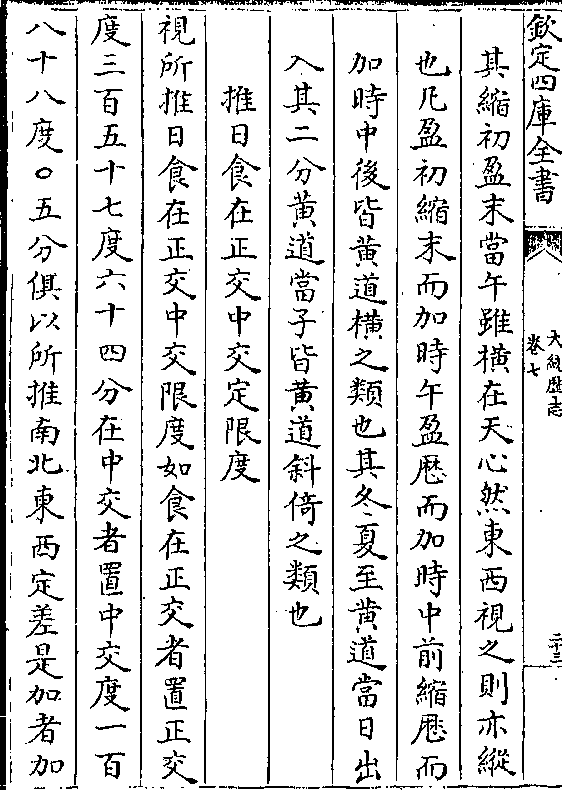 欽定四庫全書
大統歴志
卷七
二十三
其縮初盈末當午雖橫在天心然東西視之則亦縱
也凡盈初縮末而加時午盈厯而加時中前縮厯而
加時中後皆黃道橫之類也其冬夏至黃道當日出
入其二分黃道當子皆黃道斜倚之類也
推日食在正交中交定限度
視所推日食在正交中交限度如食在正交者置正交
度三百五十七度六十四分在中交者置中交度一百
八十八度○五分俱以所推南北東西定差是加者加